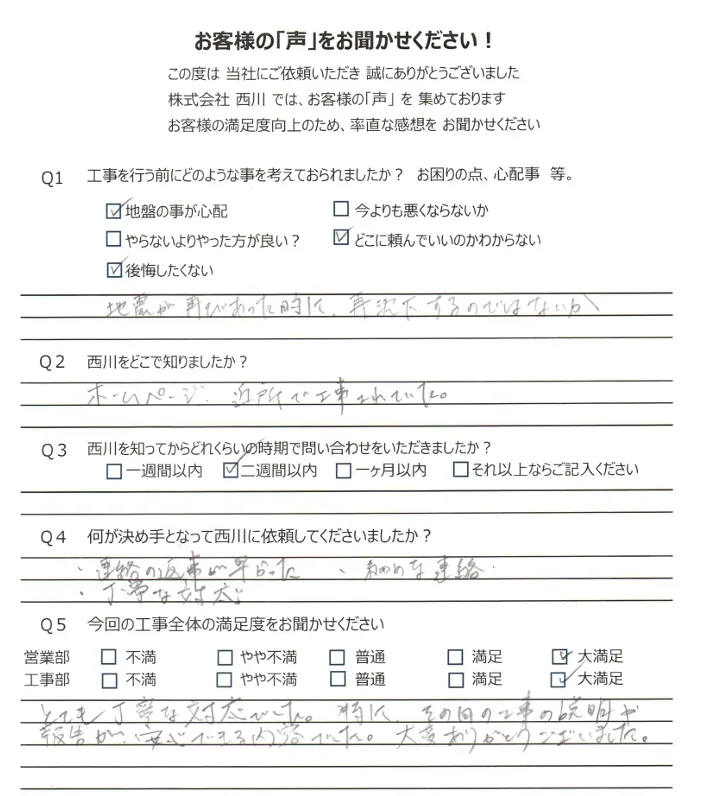 お客様の「声」をお聞かせください！
この度は 当社にご依頼いただき 誠にありがとうございました
株式会社 西川 では、お客様の「声」 を 集めております
お客様の満足度向上のため、率直な感想を お聞かせください
Q1 工事を行う前にどのような事を考えておられましたか？ お困りの点、心配事 等。
☑地盤の事が心配 □今よりも悪くならないか
□やらないよりやった方が良い？ ☑どこに頼んでいいのかわからない
☑後悔したくない
地震が再びあった時に、再沈下するのではないか
Q2 西川をどこで知りましたか？
ホームページ、近所で工事されていた。
Q3 西川を知ってからどれくらいの時期で問い合わせをいただきましたか？
□一週間以内 ☑二週間以内 □一ヶ月以内 □それ以上ならご記入ください
Q4 何が決め手となって西川に依頼してくださいましたか？
・連絡の返事が早かった ・細めな連絡
・丁寧な対応
Q5 今回の工事全体の満足度をお聞かせください
営業部 □ 不満 □ やや不満 □ 普通 □ 満足 ☑ 大満足
工事部 □ 不満 □ やや不満 □ 普通 □ 満足 ☑ 大満足
とても丁寧な対応でした。特に、その日の工事の説明や
報告が、安心できる内容でした。大変ありがとうございました。